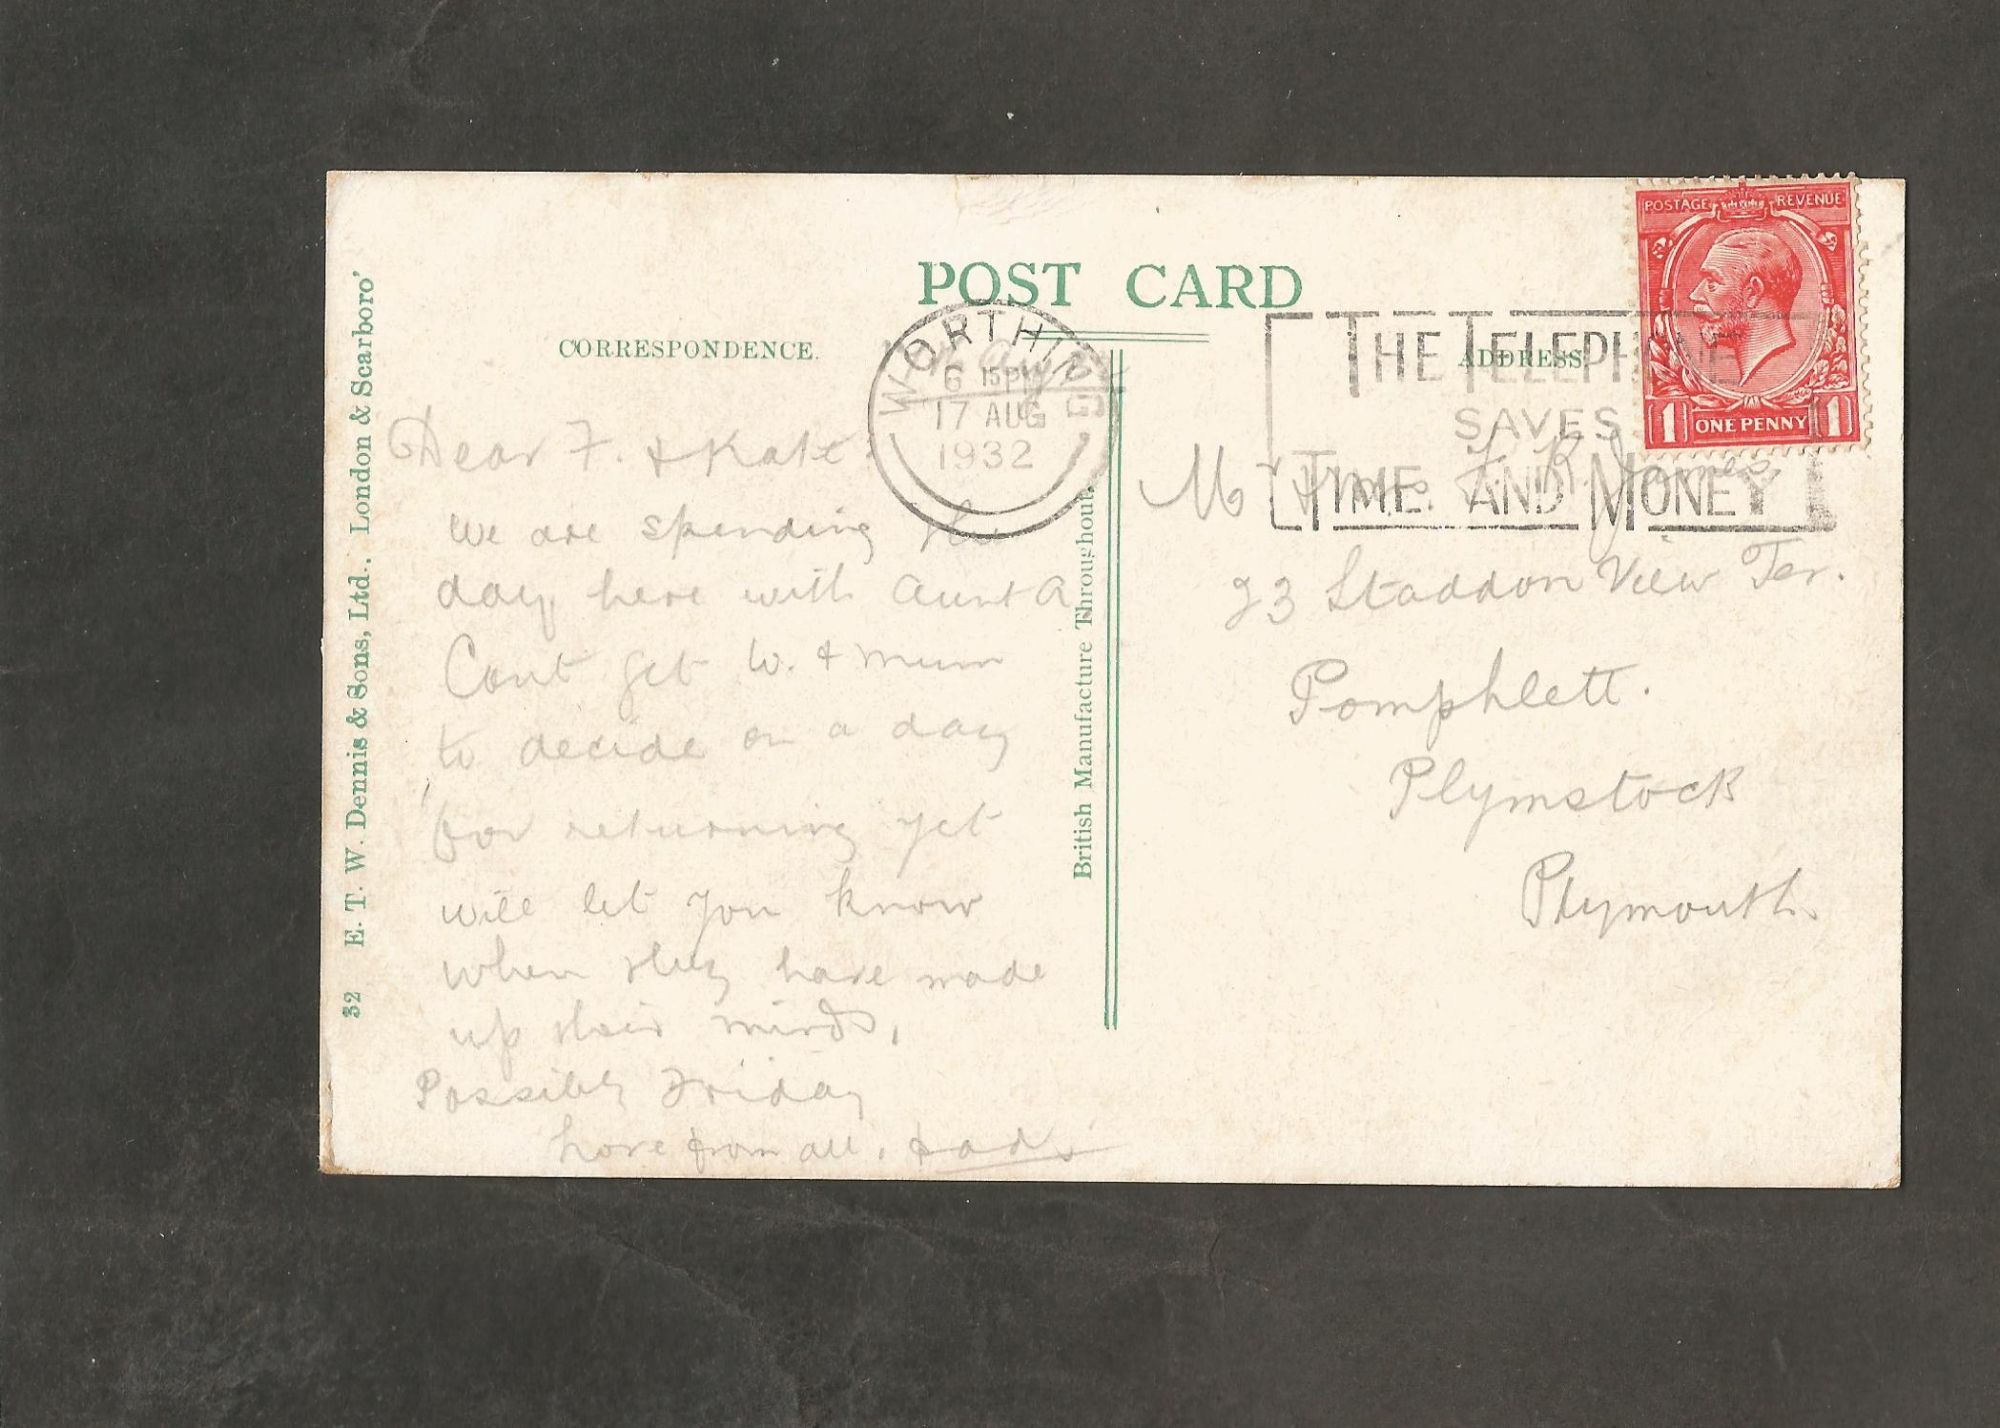 POST CARD
CORRESPONDENCE.
ADDRESS.
WORTHING
6 15PM
17 AUG
1932
THE TELEPHONE
SAVES
TIME AND MONEY
POSTAGE REVENUE
1 ONE PENNY 1
32 E. T. W. Dennis & Sons, Ltd., London & Scarboro'
British Manufacture Throughout.
Dear F. & Kate
We are spending the
day here with Aunt A
Cant get W. & Mum
to decide on a day
for returning yet
will let you know
when they have made
up their minds,
Possibly Friday
Love from all. Dad
Mr & Mrs F. R. James
23 Staddon View Ter.
Pomphlett.
Plymstock
Plymouth